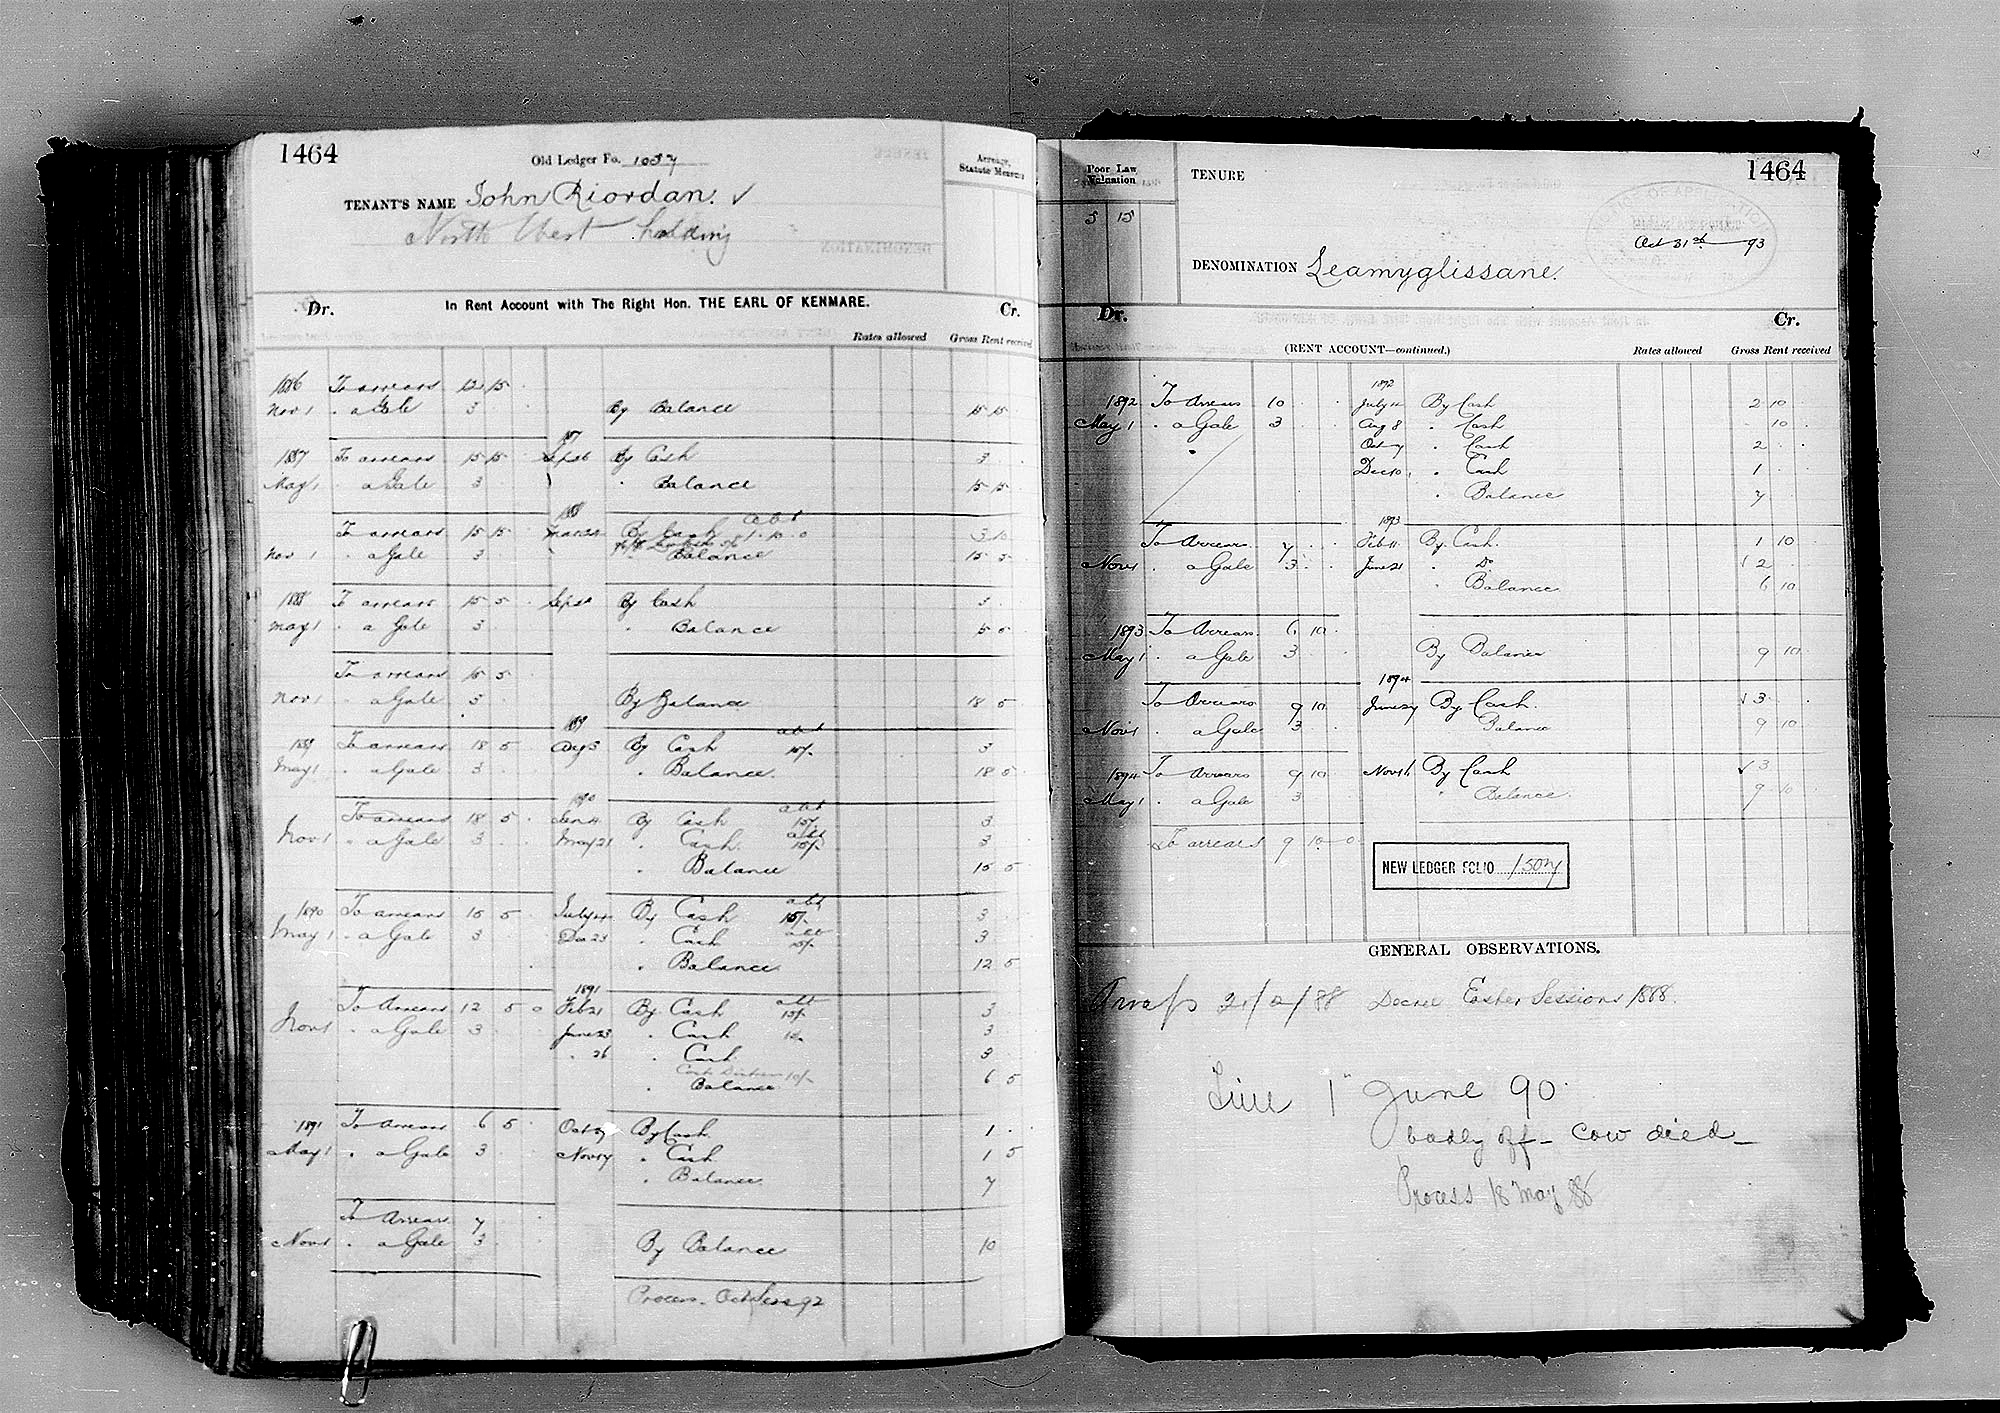 1464
Old Ledger Fo. 1037
Acreage, Statute Measure
TENANT'S NAME John Riordan. ✓
North West holding
Dr. In Rent Account with The Right Hon. THE EARL OF KENMARE. Cr.
Rates allowed Gross Rent received
1886 To arrears 12 15
Nov 1 . a Gale 3 By Balance 15 15
87
1887 To arrears 15 15 Sep 26 By Cash 3
May 1 . a Gale 3 " Balance 15 15
1888
To arrears 15 15 By Cash abt 1.10.0 3 10
Nov 1 . a Gale 3 Balance 15 5
1888 To arrears 15 5 By Cash 3
May 1 . a Gale 3 " Balance 15 5
To arrears 15 5
Nov 1 . a Gale 3 By Balance 18 5
1889
1889 To arrears 18 5 Aug 3 By Cash abt 15/- 3
May 1 . a Gale 3 " Balance 18 5
1890
To arrears 18 5 Jan 4 By Cash abt 15/- 3
Nov 1 " a Gale 3 May 21 " Cash abt 15/- 3
" Balance 15 5
1890 To arrears 15 5 July 4 By Cash abt 15/- 3
May 1 . a Gale 3 Dec 23 " Cash abt 15/- 3
" Balance 12 5
1891
To Arrears 12 5 0 Feb 21 By Cash abt 15/- 3
Nov 1 " a Gale 3 June 23 " Cash 3
" 26 " Cash 3
" Balance 6 5
1891 To Arrears 6 5 Oct By Cash 1
May 1 " a Gale 3 Nov 17 " Cash 1 5
" Balance 7
To Arrears 7
Nov 1 . a Gale 3 By Balance 10
Process Oct Sess 92
Poor Law Valuation
5 15
TENURE
1464
Oct 31st 93
DENOMINATION Leamyglissane.
Dr. Cr.
(RENT ACCOUNT—continued.) Rates allowed Gross Rent received
1892
1892 To Arrears 10 July 11 By Cash 2 10
May 1 . a Gale 3 Aug 8 " Cash 10
Oct 7 " Cash 2
Dec 10 " Cash 1
" Balance 7
1893
To Arrears 7 Feb 11 By Cash 1 10
Nov 1 . a Gale 3 June 21 " Do 2
" Balance 6 10
1893 To Arrears 6 10
May 1 . a Gale 3 By Balance 9 10
1894
To Arrears 9 10 June 27 By Cash ✓ 3
Nov 1 a Gale 3 Balance 9 10
1894 To Arrears 9 10 Nov 16 By Cash ✓ 3
May 1 . a Gale 3 " Balance 9 10
To arrears 9 10 0
NEW LEDGER FOLIO 1507
GENERAL OBSERVATIONS.
Decree Easter Sessions 1888.
1st June 90
badly off - cow died -
Process 18 May 88